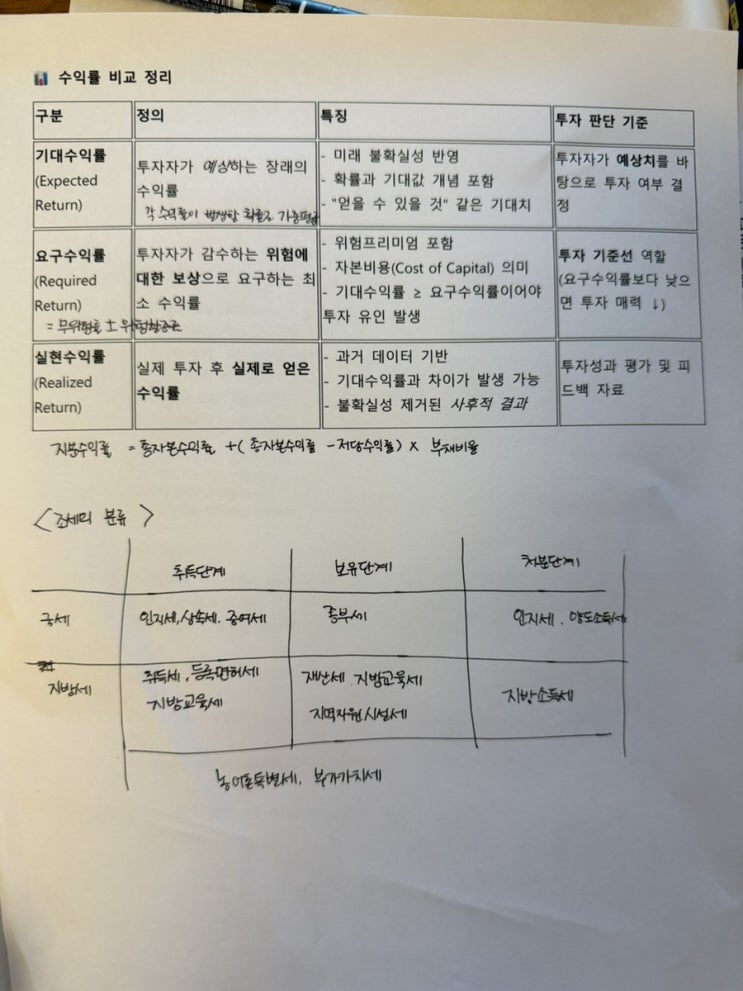 수익률 비교 정리
구분 정의 특징 투자 판단 기준
기대수익률
(Expected
Return)
투자자가 예상하는 장래의
수익률
각 수익률이 발생할 확률로 가중평균
- 미래 불확실성 반영
- 확률과 기대값 개념 포함
- "얻을 수 있을 것" 같은 기대치
투자자가 예상치를 바
탕으로 투자 여부 결
정
요구수익률
(Required
Return)
= 무위험률 ± 위험할증률
투자자가 감수하는 위험에
대한 보상으로 요구하는 최
소 수익률
- 위험프리미엄 포함
- 자본비용(Cost of Capital) 의미
- 기대수익률 ≥ 요구수익률이어야
투자 유인 발생
투자 기준선 역할
(요구수익률보다 낮으
면 투자 매력 ↓)
실현수익률
(Realized
Return)
실제 투자 후 실제로 얻은
수익률
- 과거 데이터 기반
- 기대수익률과 차이가 발생 가능
- 불확실성 제거된 사후적 결과
투자성과 평가 및 피
드백 자료
지분수익률 = 총자본수익률 + ( 총자본수익률 - 저당수익률 ) × 부채비율
< 조세의 분류 >
취득단계 보유단계 처분단계
국세 인지세, 상속세, 증여세 종부세 인지세, 양도소득세
지방세
취득세, 등록면허세
지방교육세
재산세, 지방교육세
지역자원시설세
지방소득세
농어촌특별세, 부가가치세